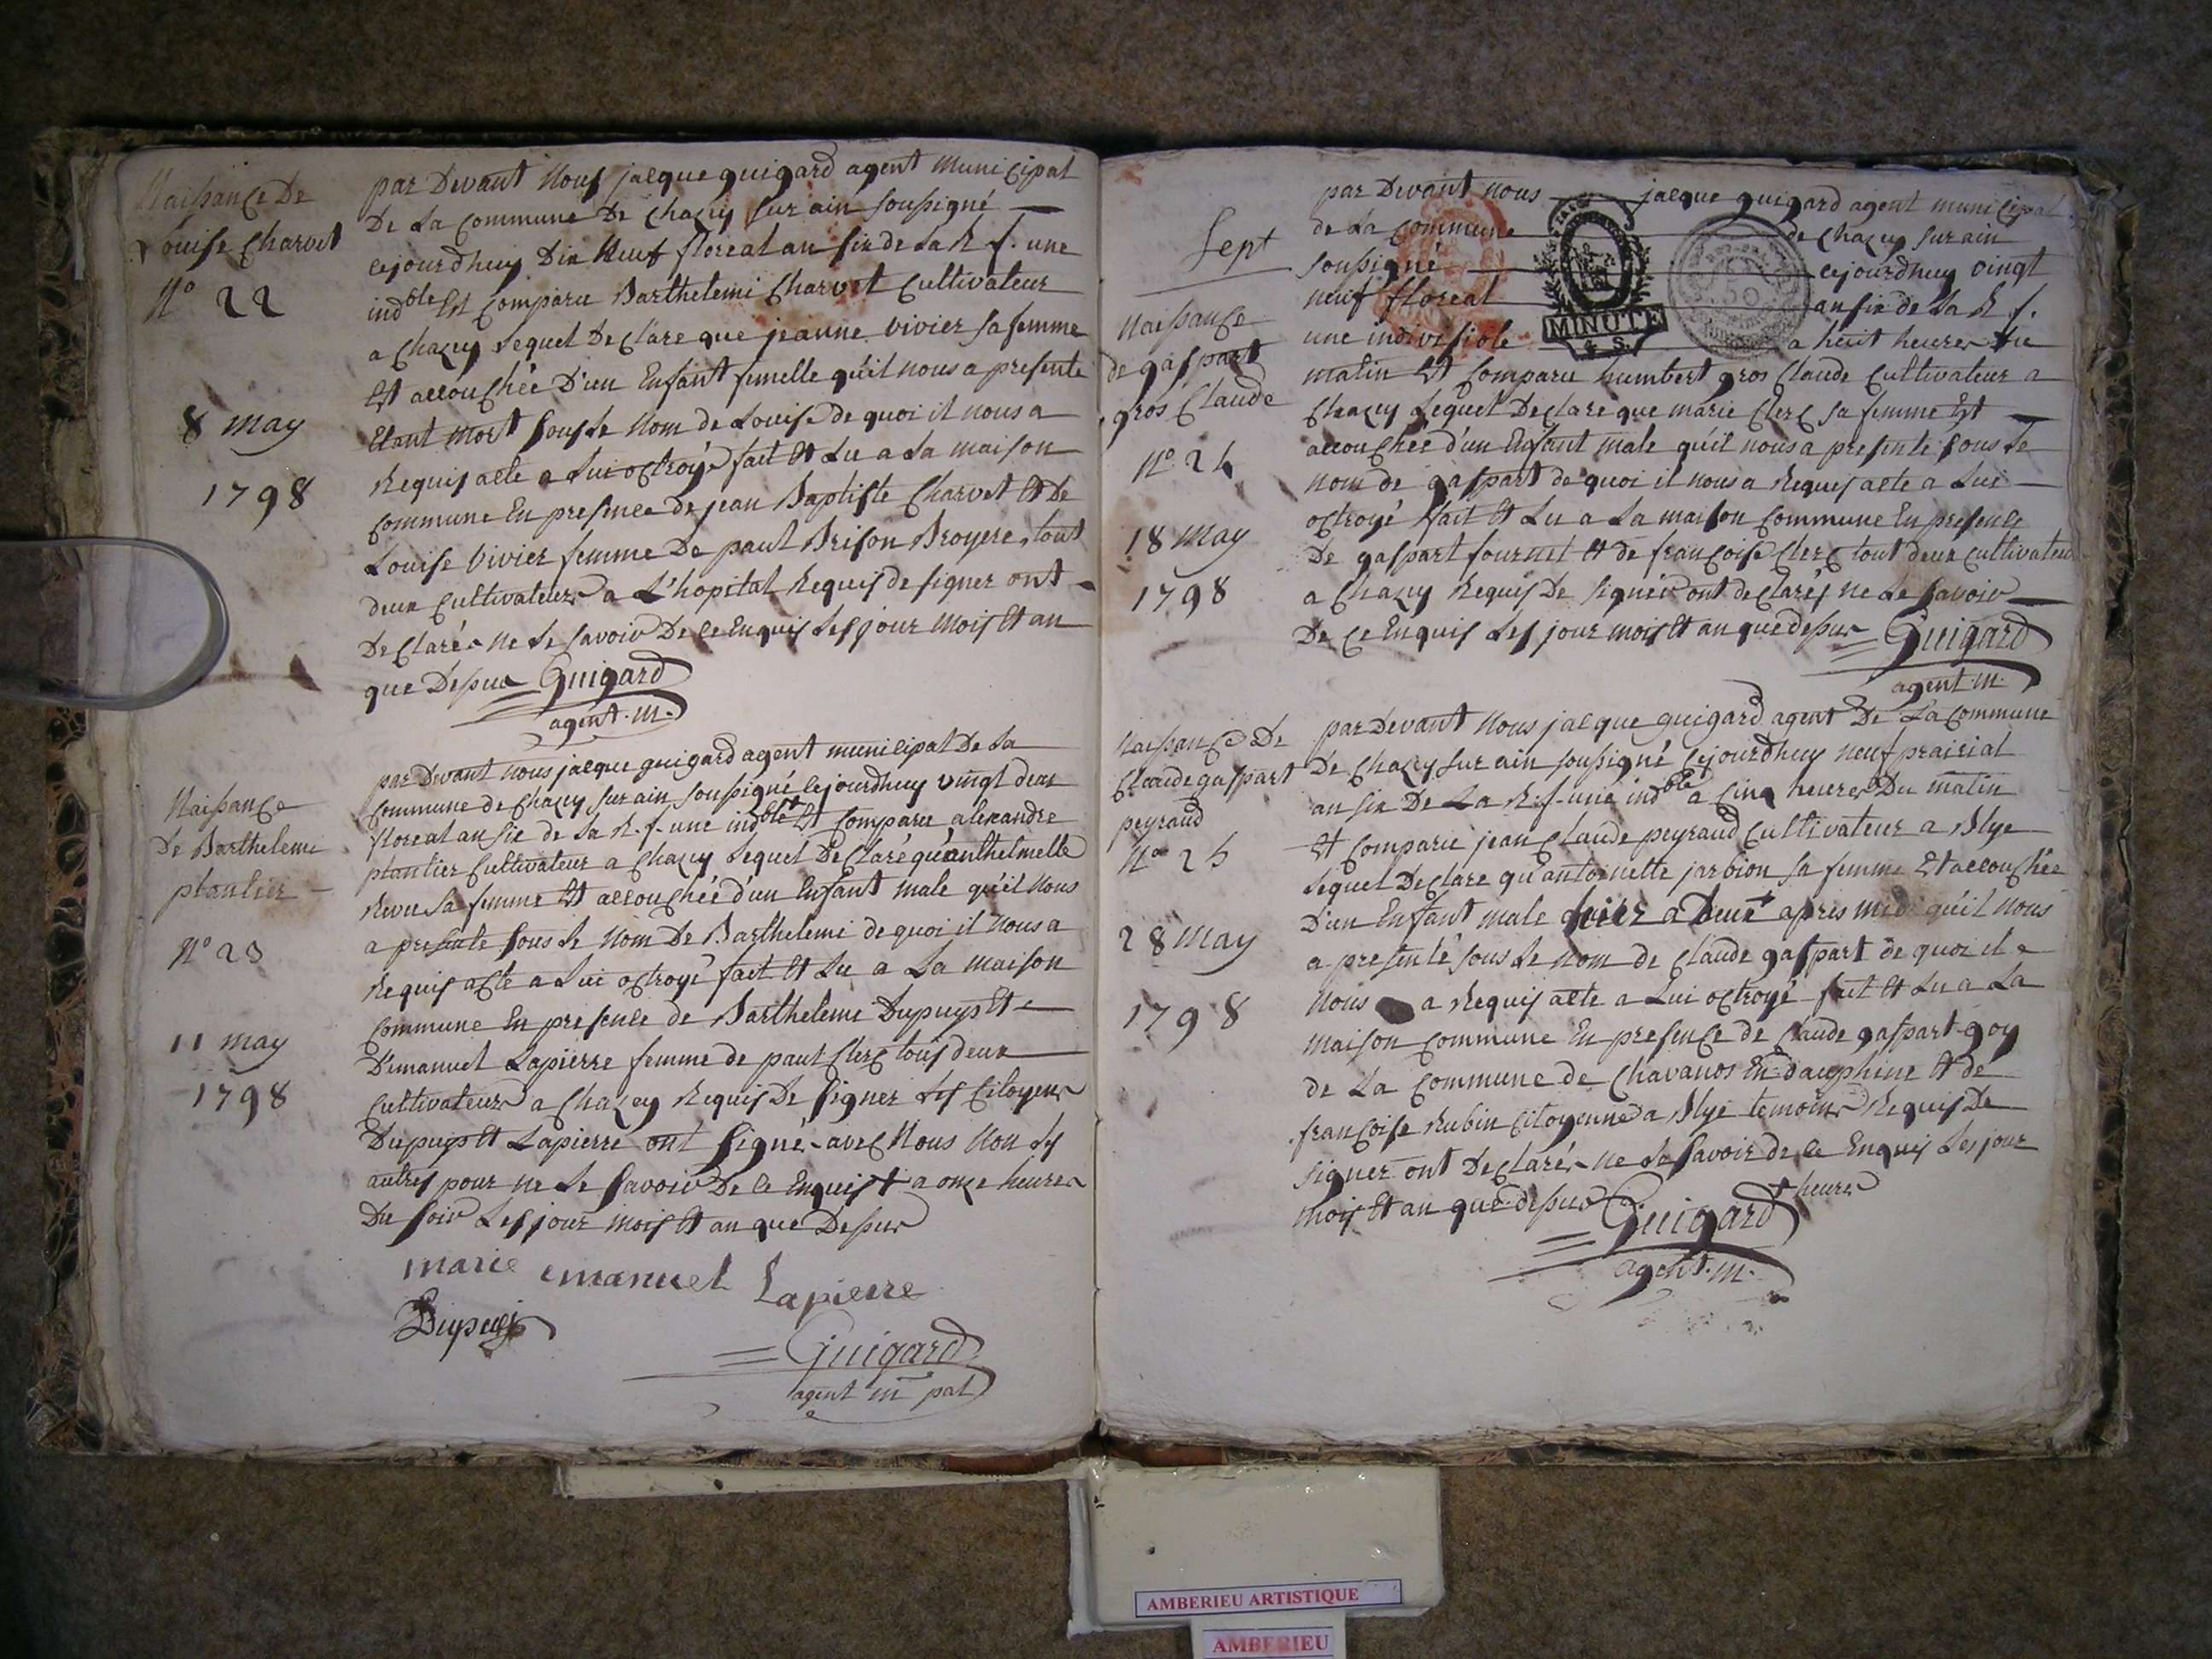 Naissance De
Louise Charvet
N° 22
8 may
1798
par Devant Nous jacque guigard agent municipal
De La Commune De Chazey sur ain soussigné
cejourdhuy Dix neuf floreal an six de la R. f. une
indble Est Comparu Barthelemi Charvet Cultivateur
a Chazey Lequel Declare que jeanne vivier sa femme
Est accouchée D'un Enfant femelle qu'il nous a presenté
Etant mort sous le Nom de Louise de quoi il nous a
Requis acte a Lui octroyé fait Et Lu a La maison
Commune En presence de jean Baptiste Charvet Et De
Louise Vivier femme De paul Brison Broyere, tout
deux Cultivateurs a L'hopital Requis de signer ont
Declarés ne Le savoir De ce Enquis Les jour Mois Et an
que Dessus Guigard
agent. m.
Naissance
De Barthelemi
plantier
N° 23
11 may
1798
par Devant nous jacque guigard agent municipal De la
Commune de Chazey sur ain soussigné cejourdhuy vingt deux
floreal an six de la R. f. une indble Est Comparu alexandre
plantier Cultivateur a Chazey Lequel Declaré qu'anthelmelle
Revu sa femme Est accouchée d'un Enfant male qu'il Nous
a presenté sous le Nom De Barthelemi de quoi il nous a
Requis acte a Lui octroyé fait Et Lu a La maison
Commune En presence de Barthelemi Dupuys Et
Demanuel Lapierre femme de paul Clerc tous deux
Cultivateurs a Chazey Requis De signer Les Citoyens
Dupuys Et Lapierre ont signé avec Nous Non Les
autres pour ne Le savoir De ce Enquis + a onze heures
Du soir Les jour mois Et an que Dessus
marie emanuel Lapierre
Dupuys
Guigard
agent m pal
Sept
Naissance
de gaspart
gros Claude
N° 24
18 May
1798
par Devant nous jacque guigard agent municipal
de La Commune de Chazey sur ain
soussigné cejourdhuy vingt
neuf floreal an six de La R. f.
une indivisible a huit heures du
MINUTE
4 S.
50
matin Est Comparu humbert gros Claude Cultivateur a
Chazey Lequel Declare que marie Clerc sa femme Est
accouchée d'un Enfant male qu'il nous a presenté sous Le
nom de gaspart de quoi il nous a Requis acte a Lui
octroyé fait Et Lu a La maison Commune En presence
De gaspart fournel Et de françoise Clerc tout deux Cultivateurs
a Chazey Requis De signer ont declarés ne Le savoir
De Ce Enquis Les jour mois Et an que dessus Guigard
agent. m.
Naissance De
Claude gaspart
peyraud
N° 25
28 May
1798
par Devant Nous jacque guigard agent De La Commune
De Chazey sur ain soussigné cejourdhuy neuf prairial
an six De La R. f. une indble a Cinq heures Du matin
Est Comparu jean Claude peyraud Cultivateur a Blye
Lequel Declare qu'antoinette jarbion sa femme Est accouchée
D'un Enfant male hier a Deux + apres midi qu'il Nous
a presenté sous Le nom de Claude gaspart de quoi il
Nous a Requis acte a Lui octroyé fait Et Lu a La
maison Commune En presence de Claude gaspart goy
de La Commune de Chavanos En dauphine Et de
françoise Rubin Citoyenne a Blye temoins Requis De
signer ont Declarés ne Le savoir de ce Enquis Les jour
mois Et an que dessus + heures
Guigard
agent. m.
AMBERIEU ARTISTIQUE
AMBERIEU